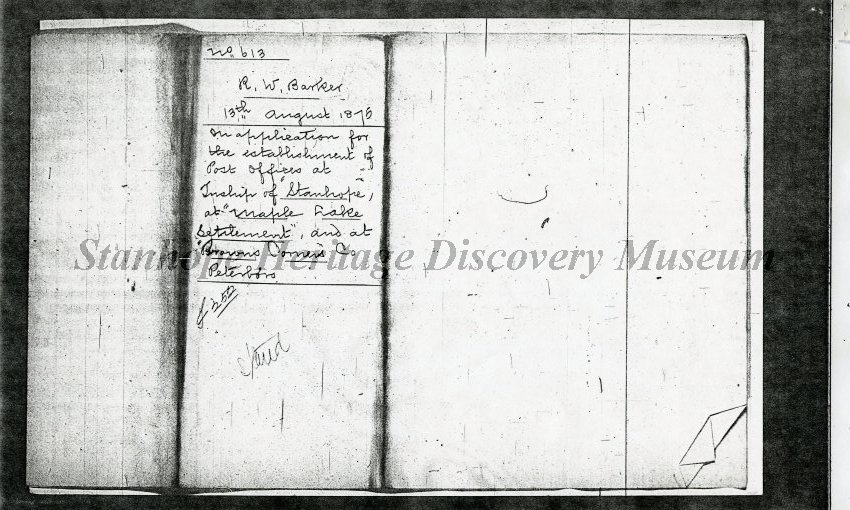 No. 613
R. W. Barker
13th August 1876
On application for
the establishment of
Post Offices at
Tnship of "Stanhope",
at "Maple Lake
Settlement", and at
"Browns Corners" Co.
Peterboro
Stanhope Heritage Discovery Museum